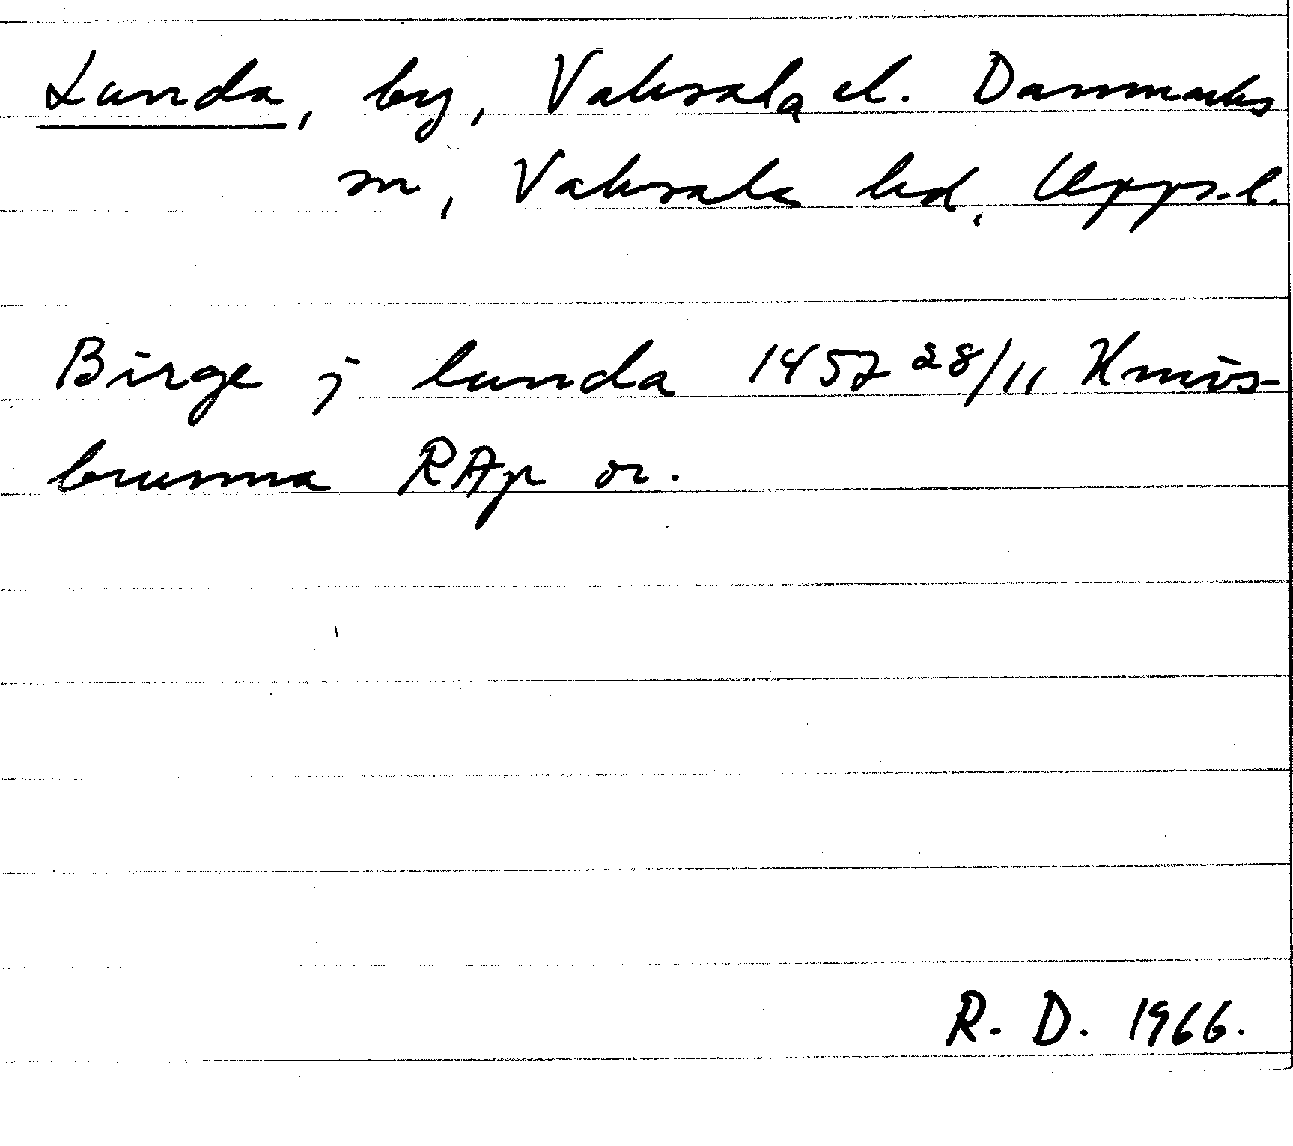 Lunda, by, Vaksala el. Danmarks
sn, Vaksala hd, Upps.l.
Birge j lunda 1457 28/11 Knivs-
brunna RAp or.
R. D. 1966.